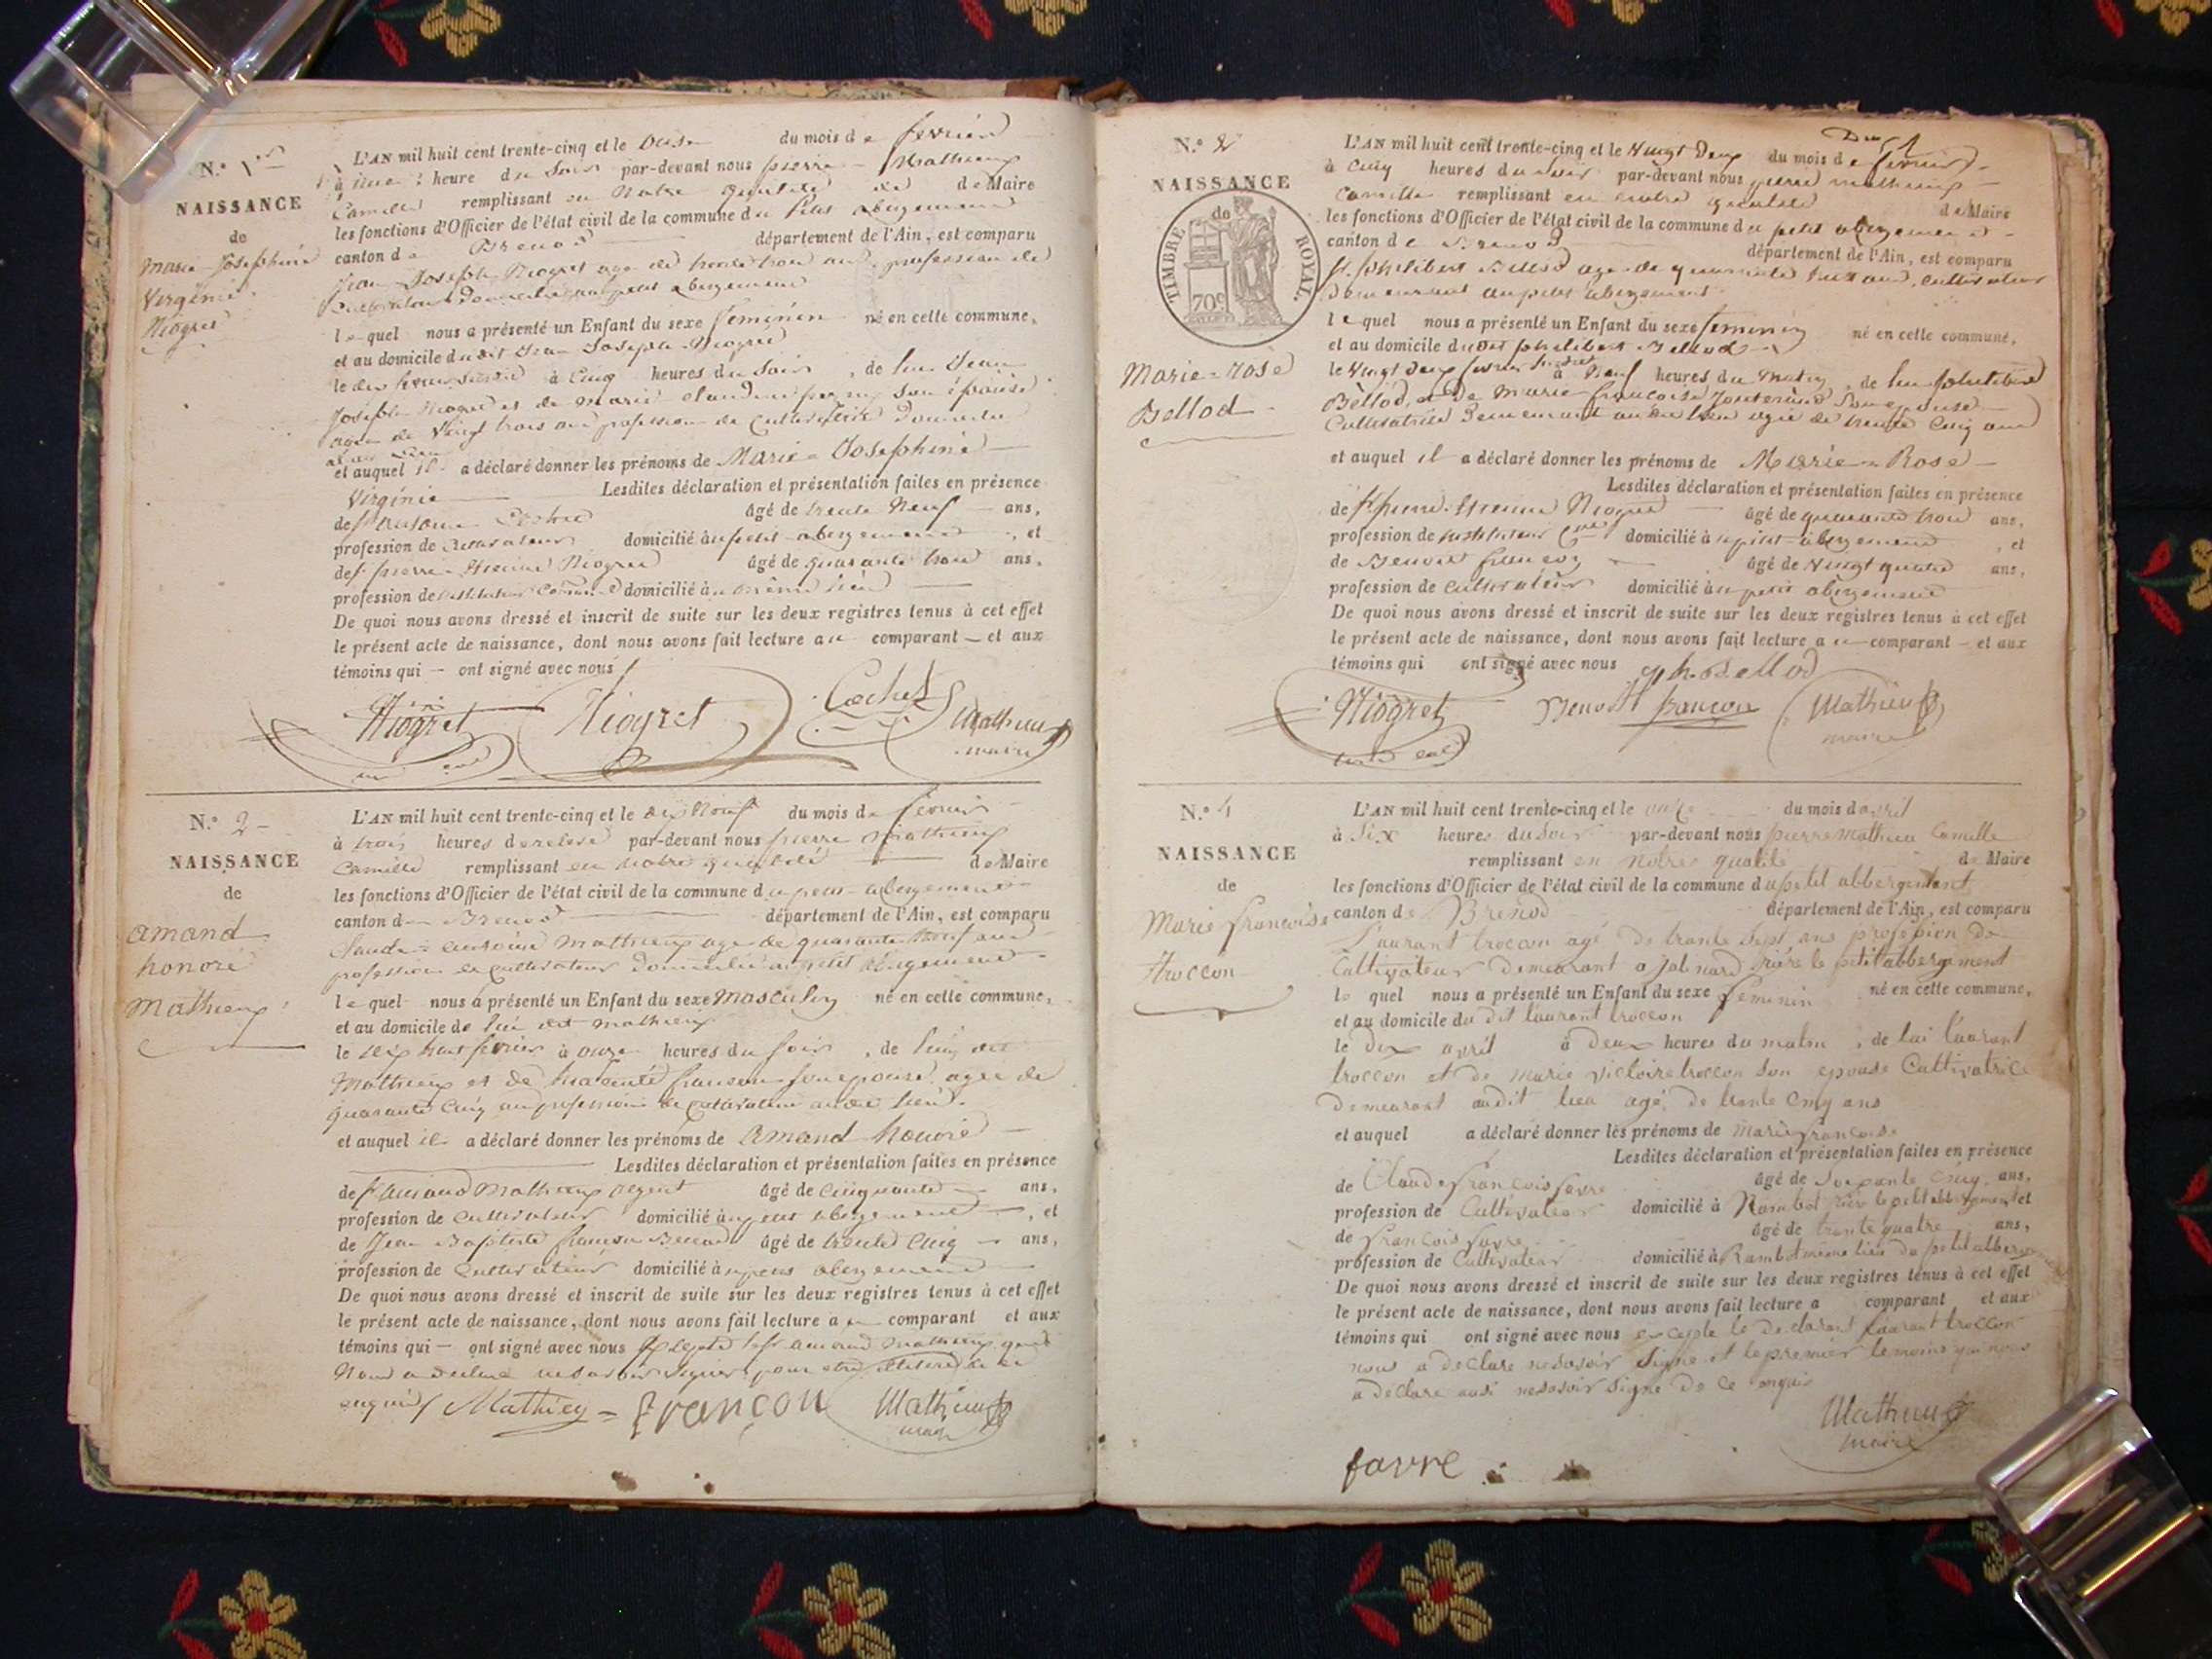 N.º 1er
NAISSANCE
de
Marie-Josephine
Virginie
Niogret
L'AN mil huit cent trente-cinq et le onze du mois de fevrier
à une heure du soir par-devant nous pierre Mathieu
Camille remplissant en Notre qualité de Maire
les fonctions d'Officier de l'état civil de la commune du petit abergement
canton de Brenod département de l'Ain, est comparu
Jean Joseph Niogret age de trente trois ans profession de
Cultivateur domicilié au petit abergement
lequel nous a présenté un Enfant du sexe feminin né en cette commune,
et au domicile dudit Jean Joseph Niogret
le dix fevrier à Cinq heures du soir, de lui Jean
Joseph Niogret et de marie claudine son épouse
agée de Vingt trois ans profession de Cultivatrice
et auquel il a déclaré donner les prénoms de Marie Josephine
Virginie Lesdites déclaration et présentation faites en présence
de âgé de trente Neuf ans,
profession de Cultivateur domicilié au petit abergement, et
de sr pierre Niogret âgé de quarante trois ans,
profession de instituteur domicilié au même lieu
De quoi nous avons dressé et inscrit de suite sur les deux registres tenus à cet effet
le présent acte de naissance, dont nous avons fait lecture au comparant et aux
témoins qui ont signé avec nous
Niogret Niogret Cochet Mathieu
maire
N.º 2
NAISSANCE
de
amand
honoré
Mathieu
L'AN mil huit cent trente-cinq et le dix Neuf du mois de fevrier
à trois heures de relevé par-devant nous pierre Mathieu
Camille remplissant en Notre qualité de Maire
les fonctions d'Officier de l'état civil de la commune du petit abergement
canton de Brenod département de l'Ain, est comparu
Claude antoine Mathieu age de quarante Neuf ans
profession de Cultivateur domicilié au petit abergement
lequel nous a présenté un Enfant du sexe Masculin né en cette commune,
et au domicile de lui dit Mathieu
le dix huit fevrier à onze heures du soir, de lui dit
Mathieu et de francon son epouse agée de
quarante Cinq ans profession de
et auquel il a déclaré donner les prénoms de amand honoré
Lesdites déclaration et présentation faites en présence
de sr Mathieu âgé de Cinquante ans,
profession de Cultivateur domicilié au petit abergement, et
de Jean Baptiste francon âgé de trente Cinq ans,
profession de Cultivateur domicilié au petit abergement
De quoi nous avons dressé et inscrit de suite sur les deux registres tenus à cet effet
le présent acte de naissance, dont nous avons fait lecture au comparant et aux
témoins qui ont signé avec nous Mathieu
Nous a declaré ne savoir signer pour
Mathieu Françon Mathieu
maire
N.º
NAISSANCE
de
TIMBRE ROYAL
70c
Marie-rose
Bellod
L'AN mil huit cent trente-cinq et le Vingt Deux du mois de fevrier
à Cinq heures du soir par-devant nous pierre mathieu
Camille remplissant en notre qualité de Maire
les fonctions d'Officier de l'état civil de la commune du petit abergement
canton de Brenod département de l'Ain, est comparu
sr. philibert Bellod age de quarante ans, cultivateur
Demeurant au petit abergement
lequel nous a présenté un Enfant du sexe feminin né en cette commune,
et au domicile dudit philibert Bellod
le Vingt deux fevrier à Neuf heures du Matin, de lui philibert
Bellod, et de Marie françoise son epouse
Cultivatrice Demeurant au dit lieu agée de trente Cinq ans
et auquel il a déclaré donner les prénoms de Marie Rose
Lesdites déclaration et présentation faites en présence
de sr pierre Niogret âgé de quarante trois ans,
profession de instituteur domicilié au petit abergement, et
de Benoit françon âgé de Vingt quatre ans,
profession de Cultivateur domicilié au petit abergement
De quoi nous avons dressé et inscrit de suite sur les deux registres tenus à cet effet
le présent acte de naissance, dont nous avons fait lecture au comparant et aux
témoins qui ont signé avec nous ph. Bellod
Niogret Benoit françon Mathieu
maire
N.º 4
NAISSANCE
de
Marie françoise
troccon
L'AN mil huit cent trente-cinq et le onze du mois d'avril
à Six heures du soir par-devant nous pierre Mathieu Camille
remplissant en notre qualité de Maire
les fonctions d'Officier de l'état civil de la commune du petit abbergement
canton de Brenod département de l'Ain, est comparu
Laurant troccon agé de trante Sept ans profession de
Cultivateur demeurant a jalinard rière le petit abbergement
lequel nous a présenté un Enfant du sexe feminin né en cette commune,
et au domicile du dit laurant troccon
le dix avril à Deux heures du matin, de lui laurant
troccon et de marie victoire troccon son epouse Cultivatrice
demeurant audit lieu agé de trante cinq ans
et auquel a déclaré donner les prénoms de Marie françoise
Lesdites déclaration et présentation faites en présence
de Claude françois favre âgé de Soixante Cinq ans,
profession de Cultivateur domicilié à rière le petit abbergement et
de françois favre âgé de trante quatre ans,
profession de Cultivateur domicilié à même lieu du petit abbergement
De quoi nous avons dressé et inscrit de suite sur les deux registres tenus à cet effet
le présent acte de naissance, dont nous avons fait lecture a comparant et aux
témoins qui ont signé avec nous excepté le declarant laurant troccon
nous a declare ne savoir signe et le premier temoins qui nous
a declare ausi ne savoir signe de ce enquis
Mathieu
maire
favre